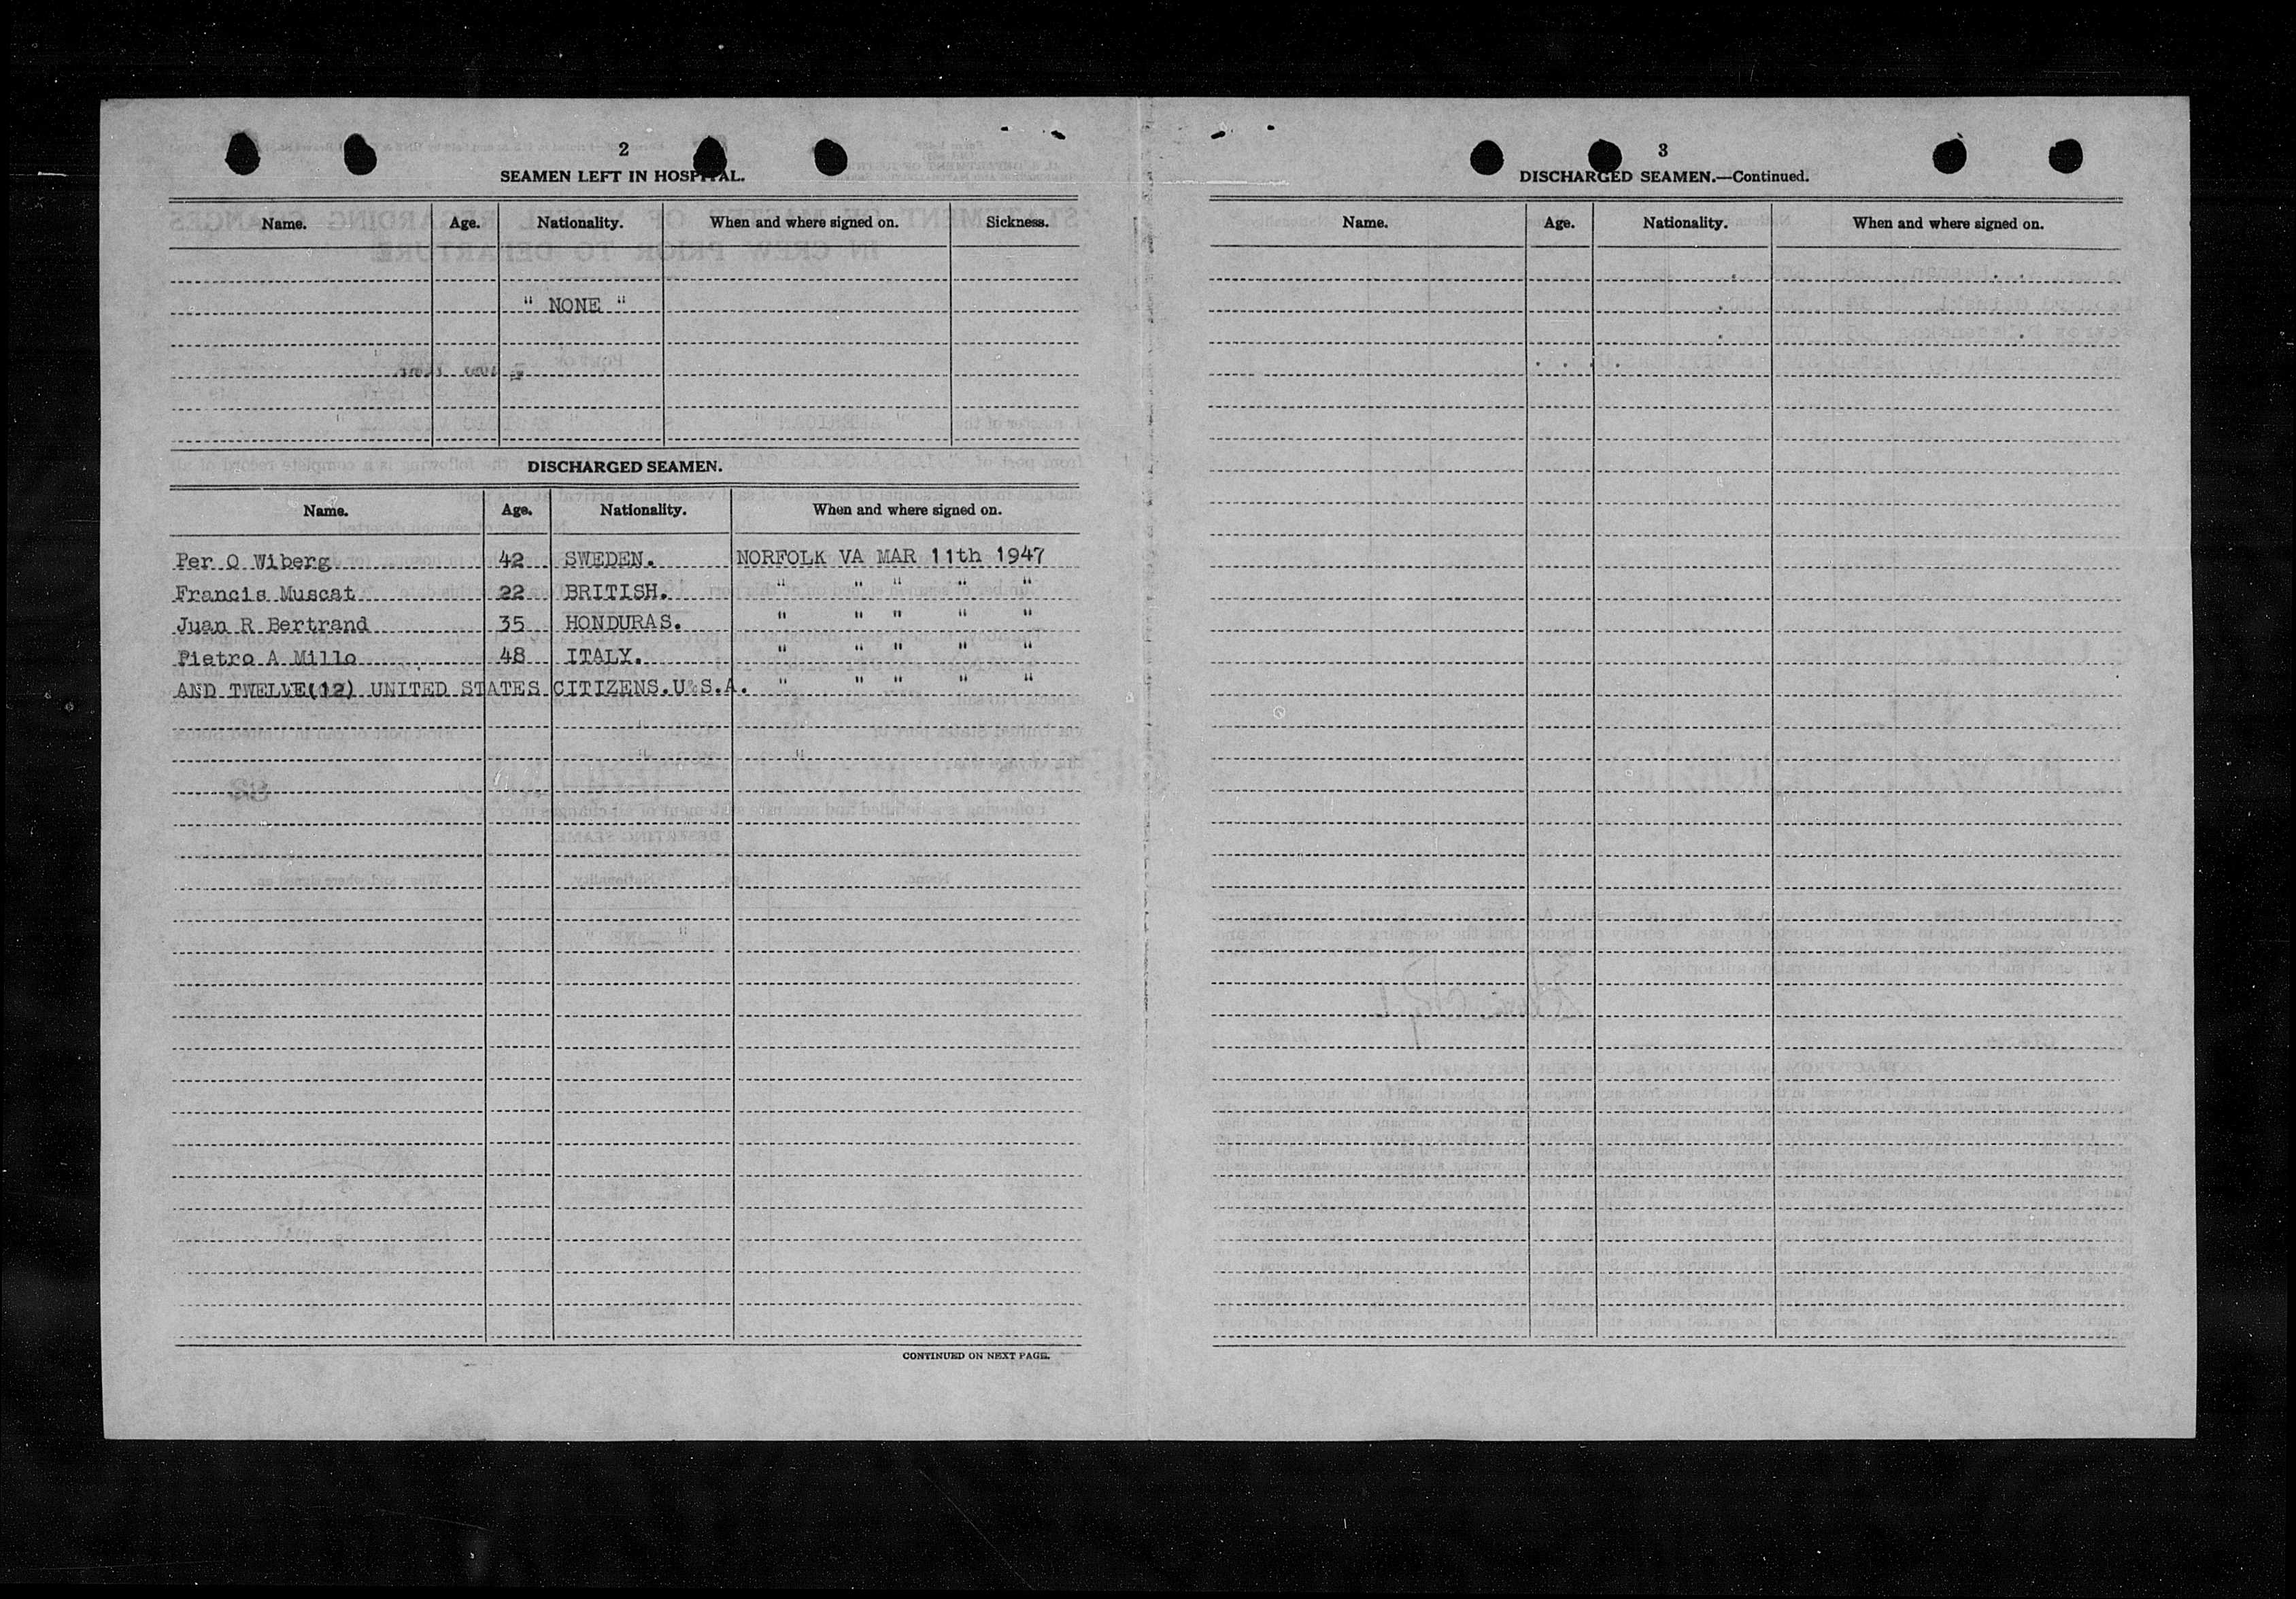 2
SEAMEN LEFT IN HOSPITAL.
Name. Age. Nationality. When and where signed on. Sickness.
" NONE "
DISCHARGED SEAMEN.
Name. Age. Nationality. When and where signed on.
Per O Wiberg 42 SWEDEN. NORFOLK VA MAR 11th 1947
Francis Muscat 22 BRITISH. " " " " "
Juan R Bertrand 35 HONDURAS. " " " " "
Pietro A Millo 48 ITALY. " " " " "
AND TWELVE(12) UNITED STATES CITIZENS.U.S.A. " " " " "
CONTINUED ON NEXT PAGE.
3
DISCHARGED SEAMEN.—Continued.
Name. Age. Nationality. When and where signed on.